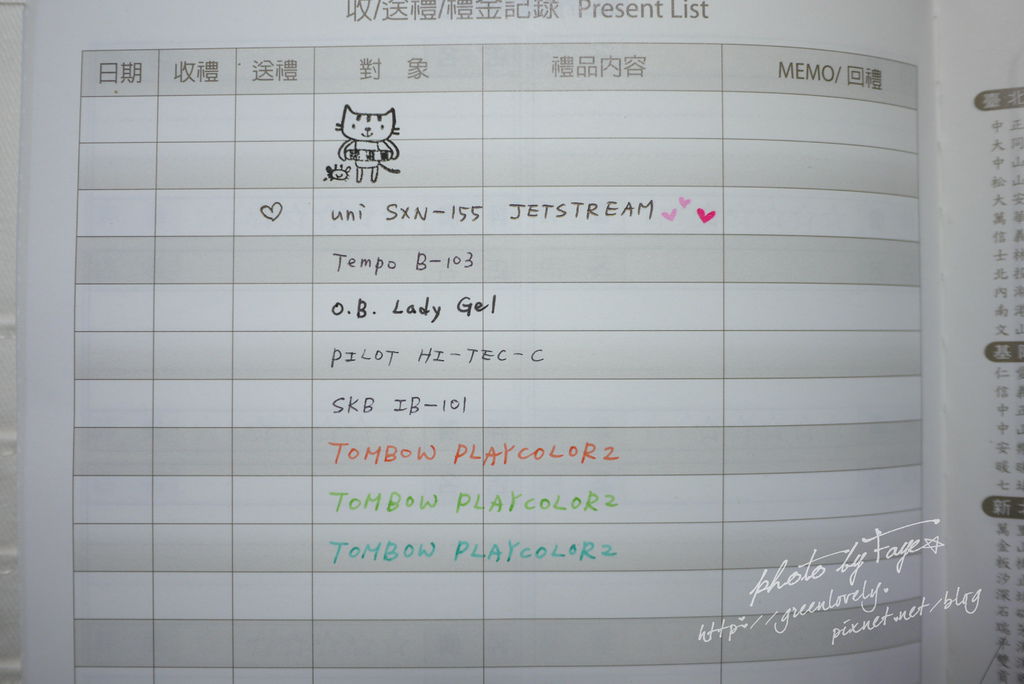 收/送禮/禮金記錄 Present List
日期 收禮 送禮 對 象 禮品內容 MEMO/回禮
uni SXN-155 JETSTREAM
Tempo B-103
O.B. Lady Gel
PILOT HI-TEC-C
SKB IB-101
TOMBOW PLAYCOLOR2
TOMBOW PLAYCOLOR2
TOMBOW PLAYCOLOR2
photo by Faye
http://greenlovely.
pixnet.net/blog
臺北
中正
大阿
中山
松山
大安
萬華
信義
士林
北投
內湖
南港
文山
基
仁愛
信義
中正
中山
安
暖
七
新
萬里
金山
板
汐止
深坑
石
瑞
平
雙
貢